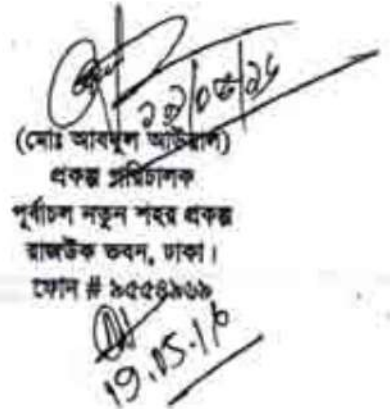 (মোঃ আবদুল আউয়াল)
প্রকল্প পরিচালক
পূর্বাচল নতুন শহর প্রকল্প
রাজউক ভবন, ঢাকা।
ফোন # ৯৫৫৪৯৬৯
19.05.16